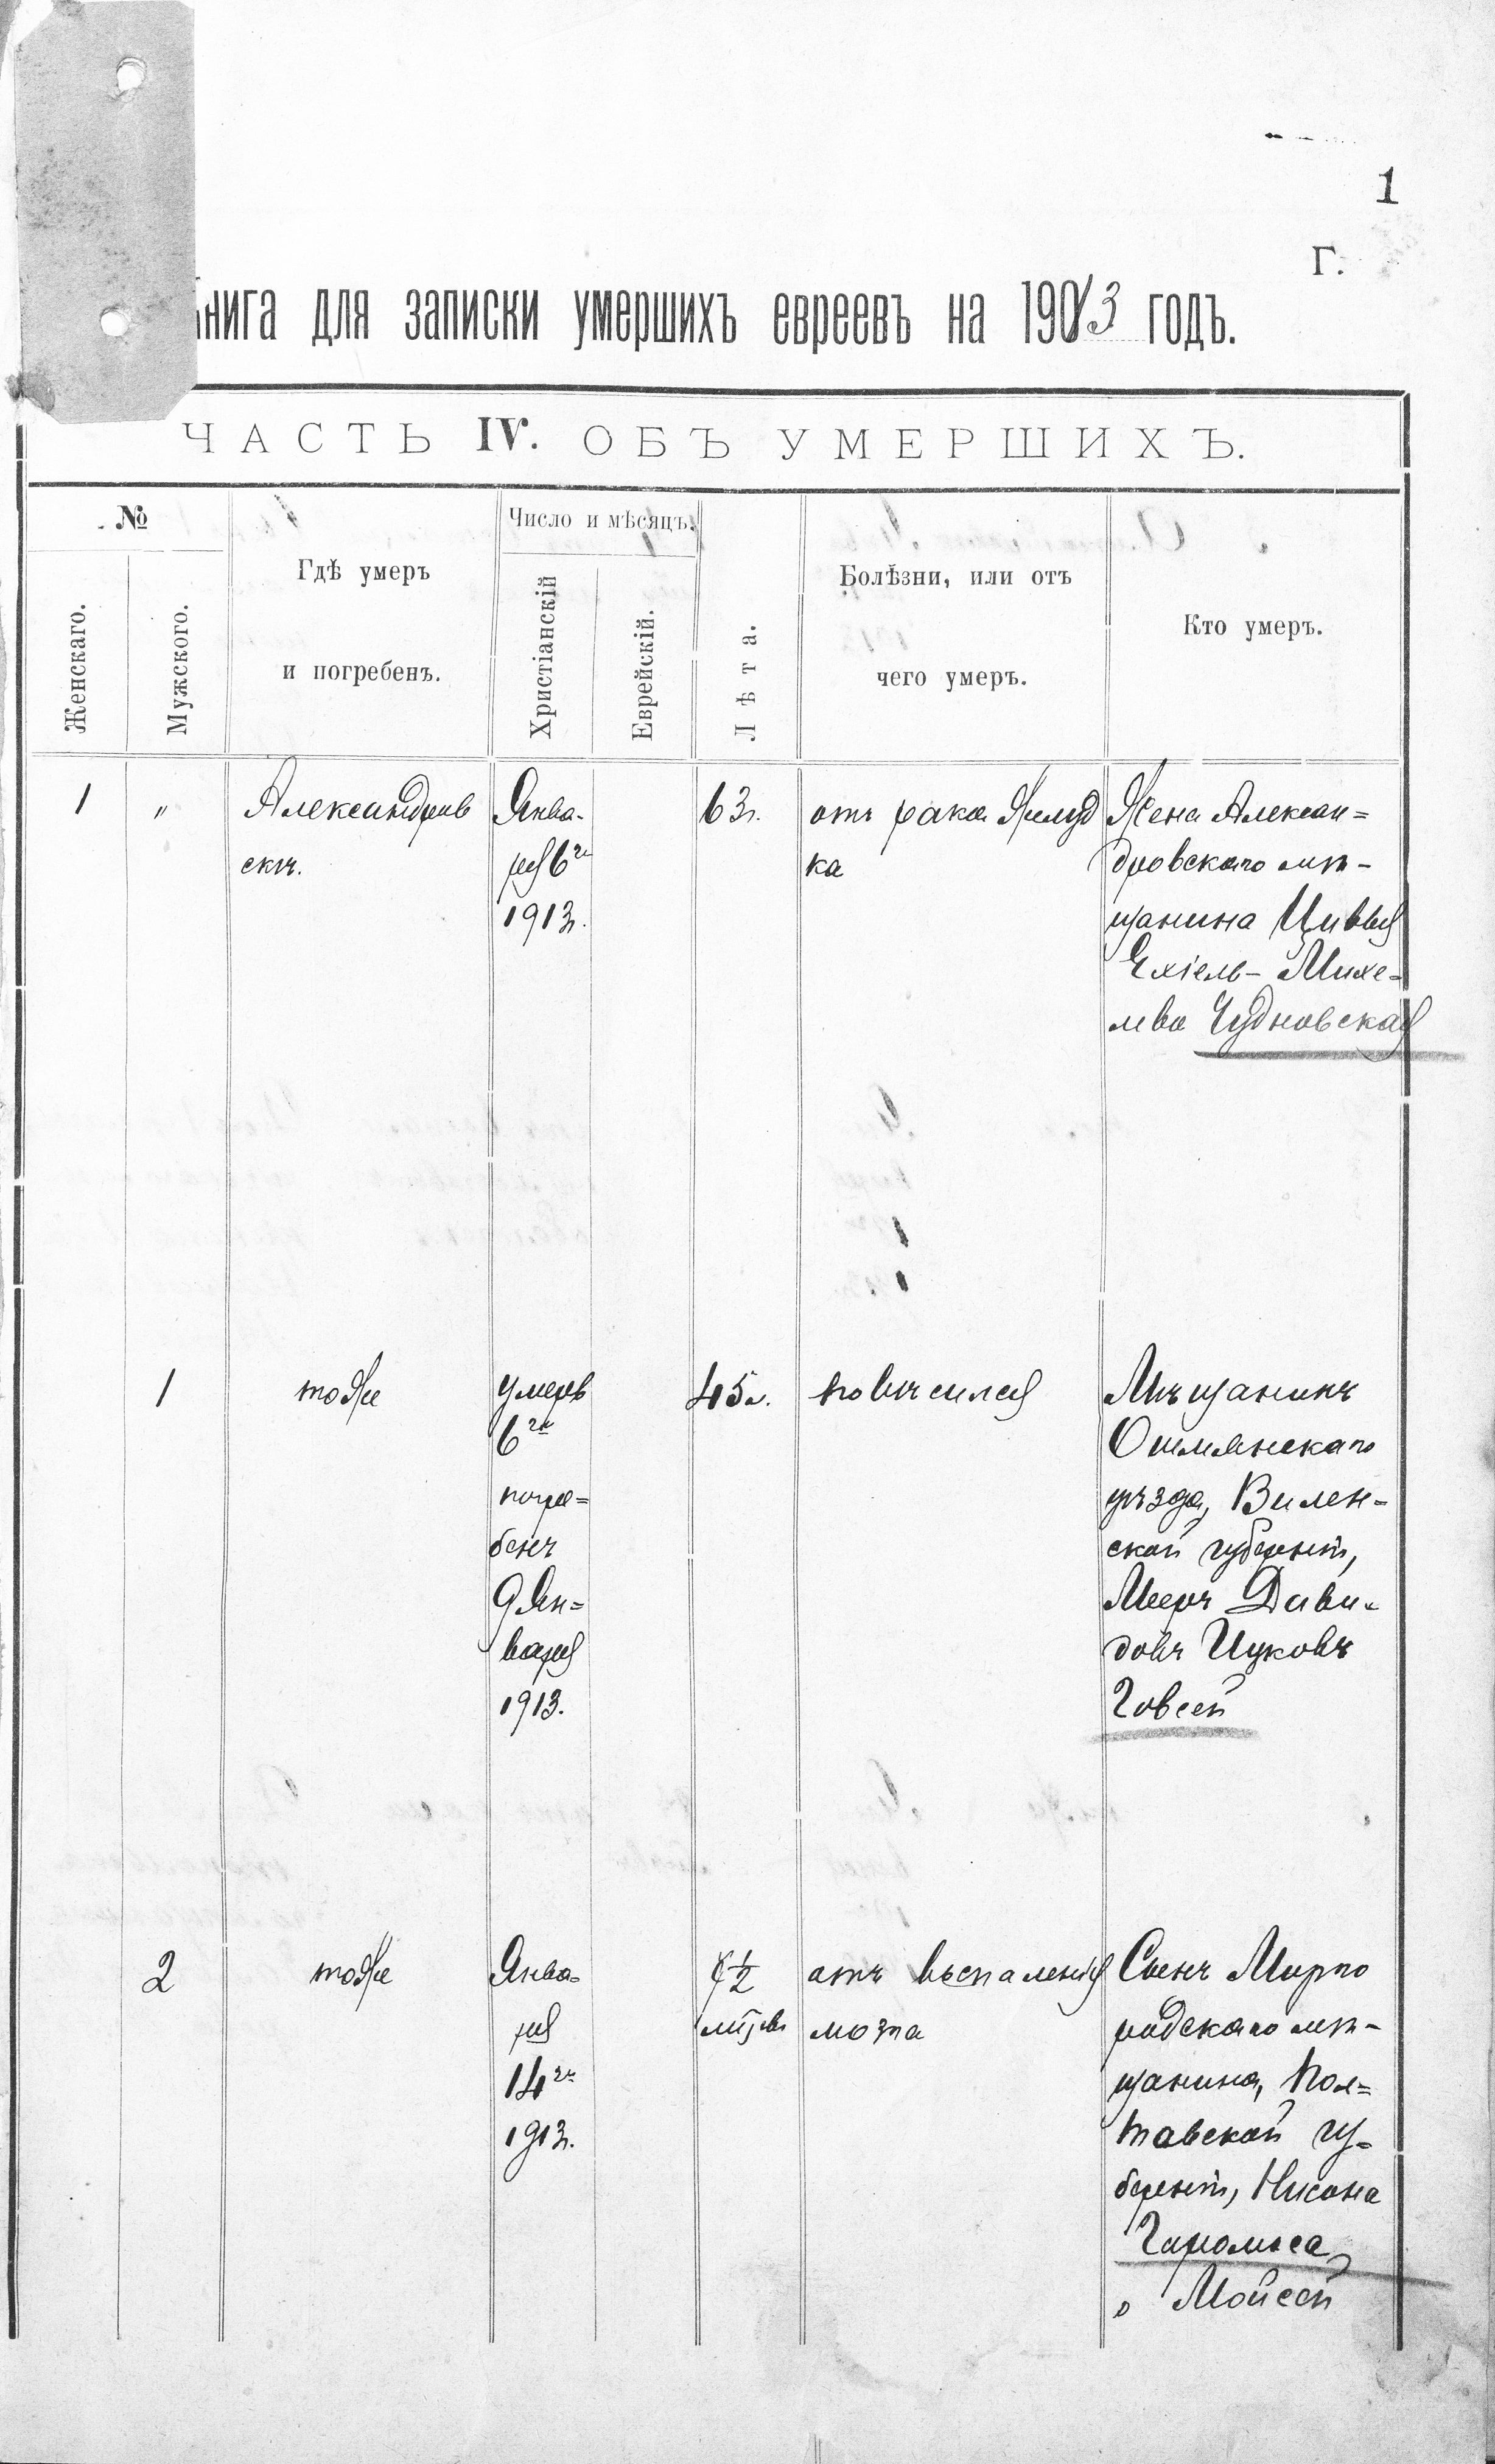 1
Г.
Книга для записки умершихъ евреевъ на 1913 годъ.
ЧАСТЬ IV. ОБЪ УМЕРШИХЪ.
№
Женскаго.
Мужского.
Гдѣ умеръ
и погребенъ.
Число и мѣсяцъ.
Христіанскій
Еврейскій.
Лѣта.
Болѣзни, или отъ
чего умеръ.
Кто умеръ.
1
"
Александров
скъ.
Янва-
ря 6го
1913г.
63г.
отъ рака желуд
ка
Жена Алексан=
дровскаго мѣ-
щанина Цивья
Ехіель-Михе=
лева Чудновская
1
тоже
умеръ
6го
погре=
бенъ
9 Ян=
варя
1913.
45л.
повѣсился
Мѣщанинъ
Ошмянскаго
уѣзда, Вилен-
ской губерніи,
Мееръ Дави-
довъ Ицковъ
Говсей
2
тоже
Янва=
ря
14го
1913г.
1/2
отъ воспаленія
мозга
Сынъ Мирго
родскаго мѣ-
щанина, Пол=
тавской гу=
берніи, Нисона
Мойсей